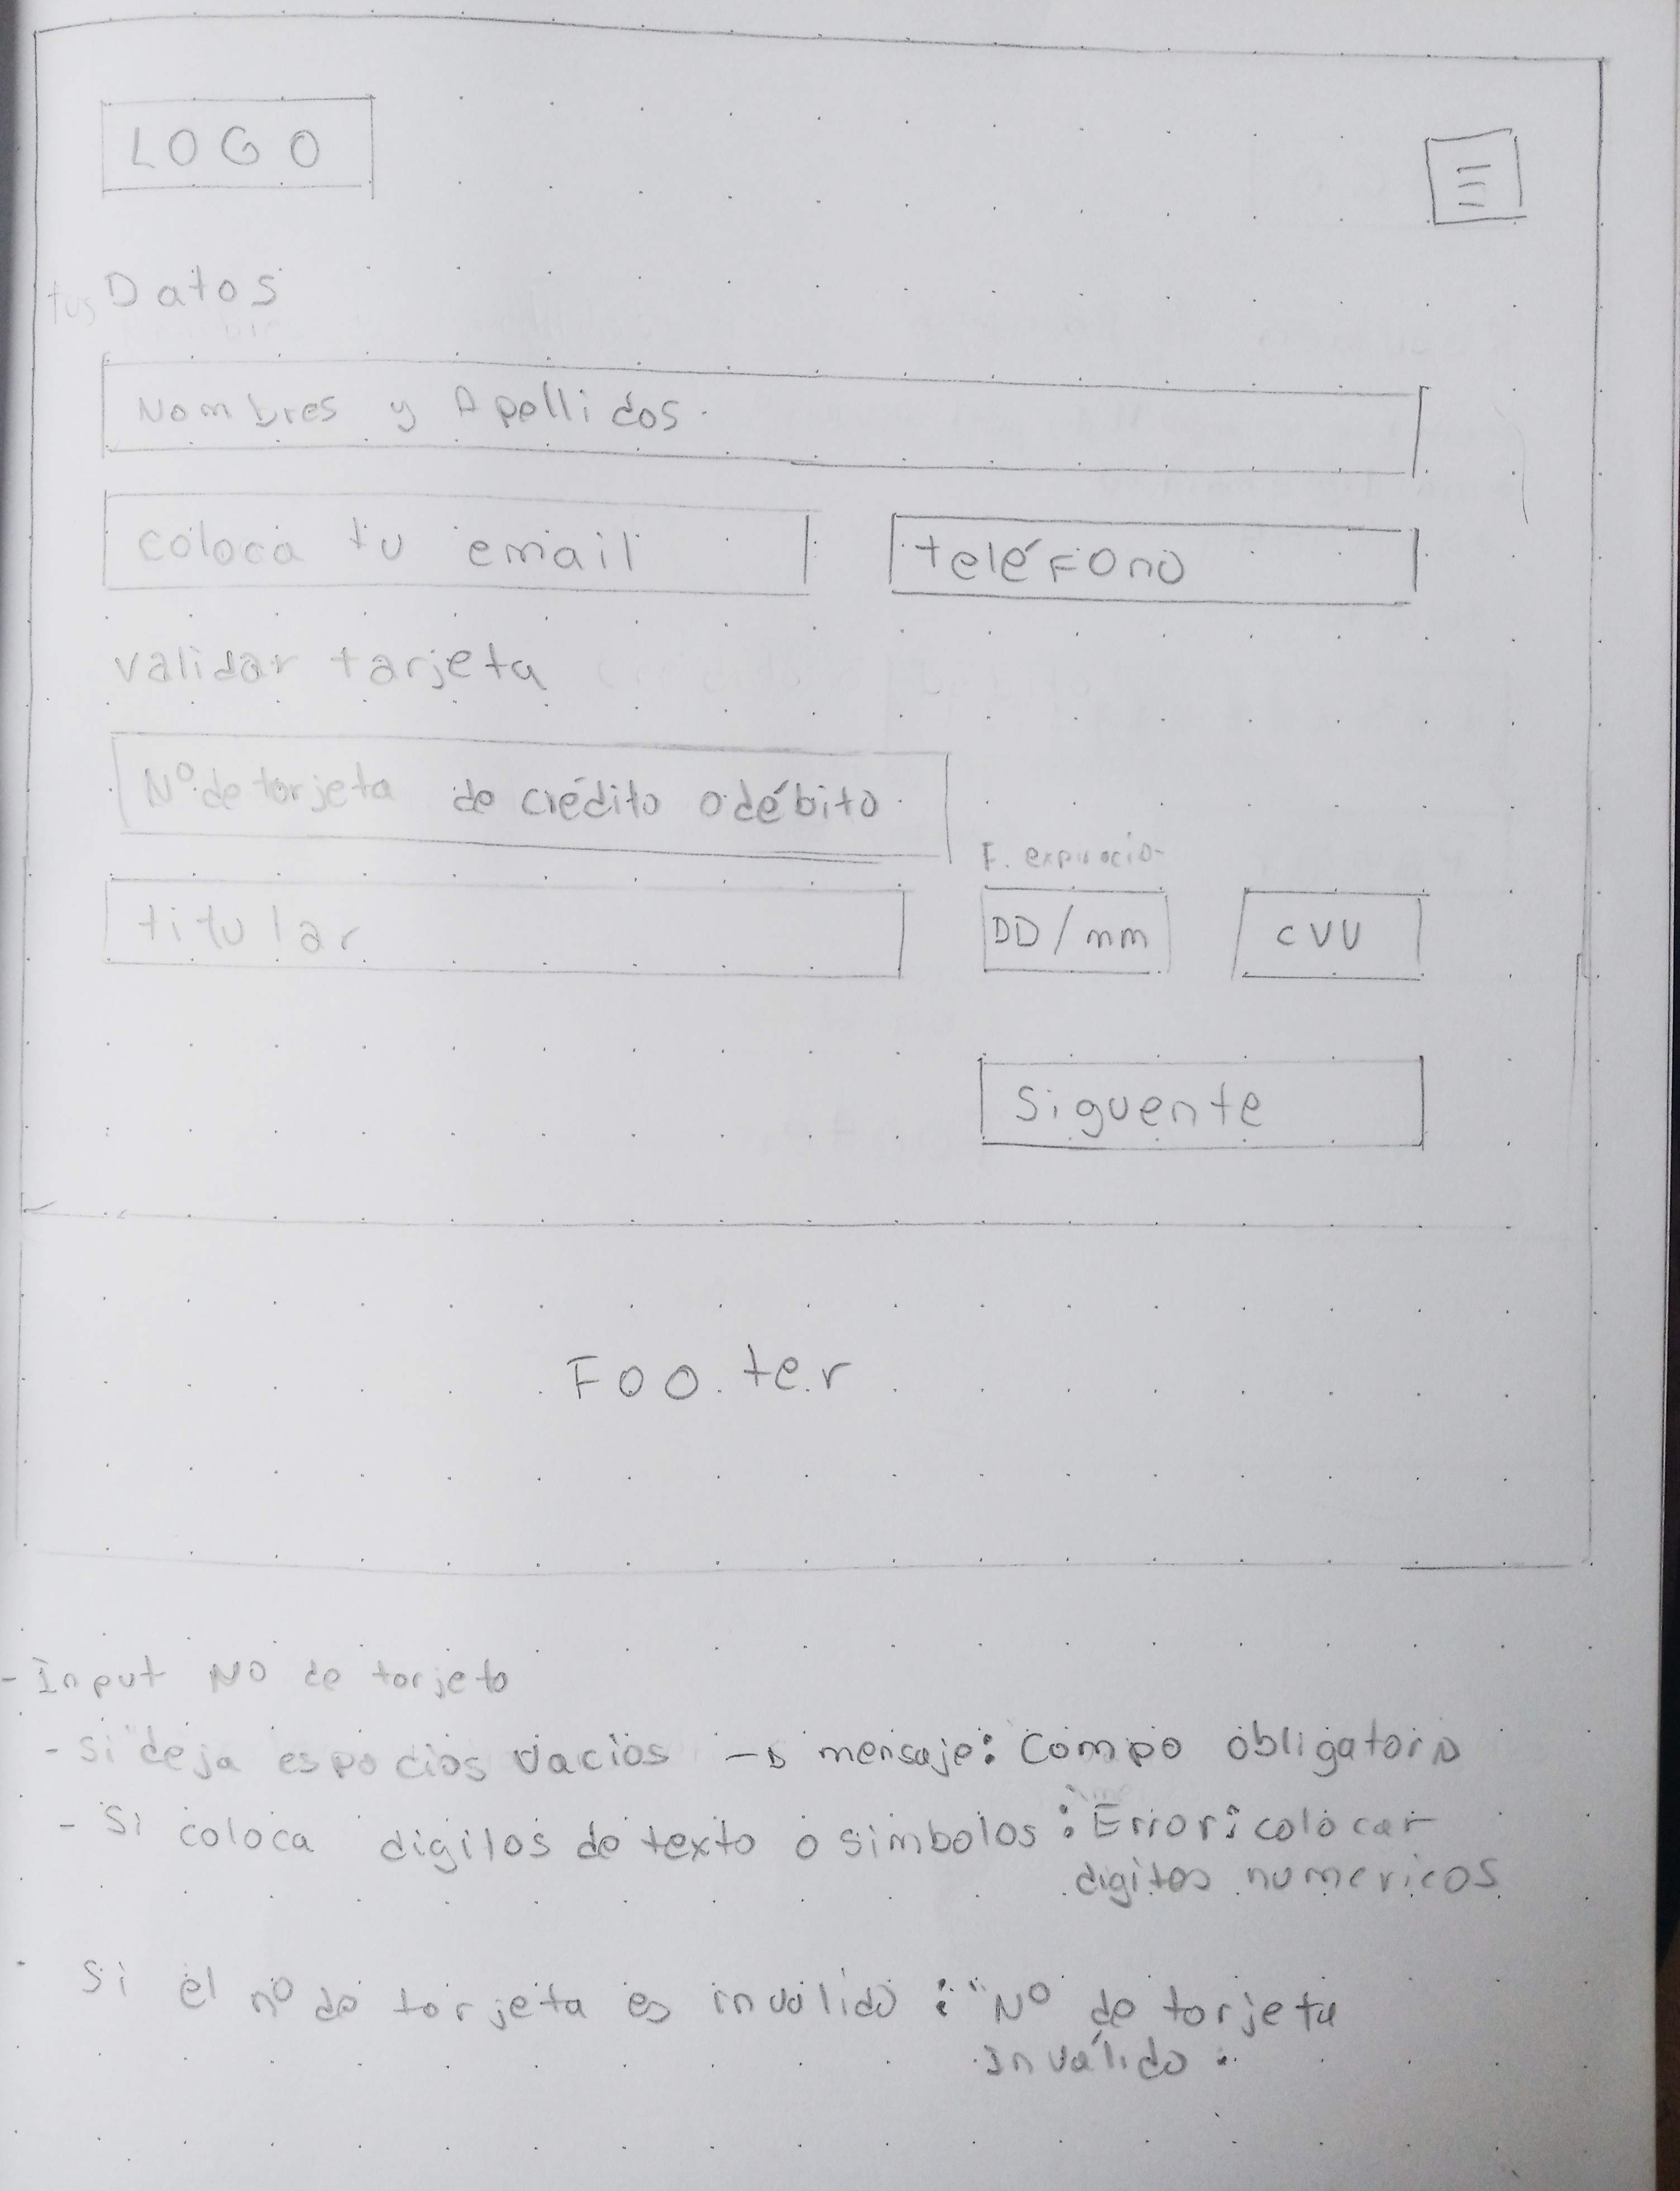 LOGO
tus Datos
Nombres y Apellidos
coloca tu email
teléfono
validar tarjeta
Nº de tarjeta de crédito o débito
F. expiracio
titular
DD/mm
CVV
Siguente
Footer
- Input Nº de tarjeta
- Si deja espacios vacios → mensaje: Campo obligatorio
- Si coloca digitos de texto o simbolos : Error: colocar
digitos numericos
Si el nº de tarjeta es invalido : "Nº de tarjeta
inválido"